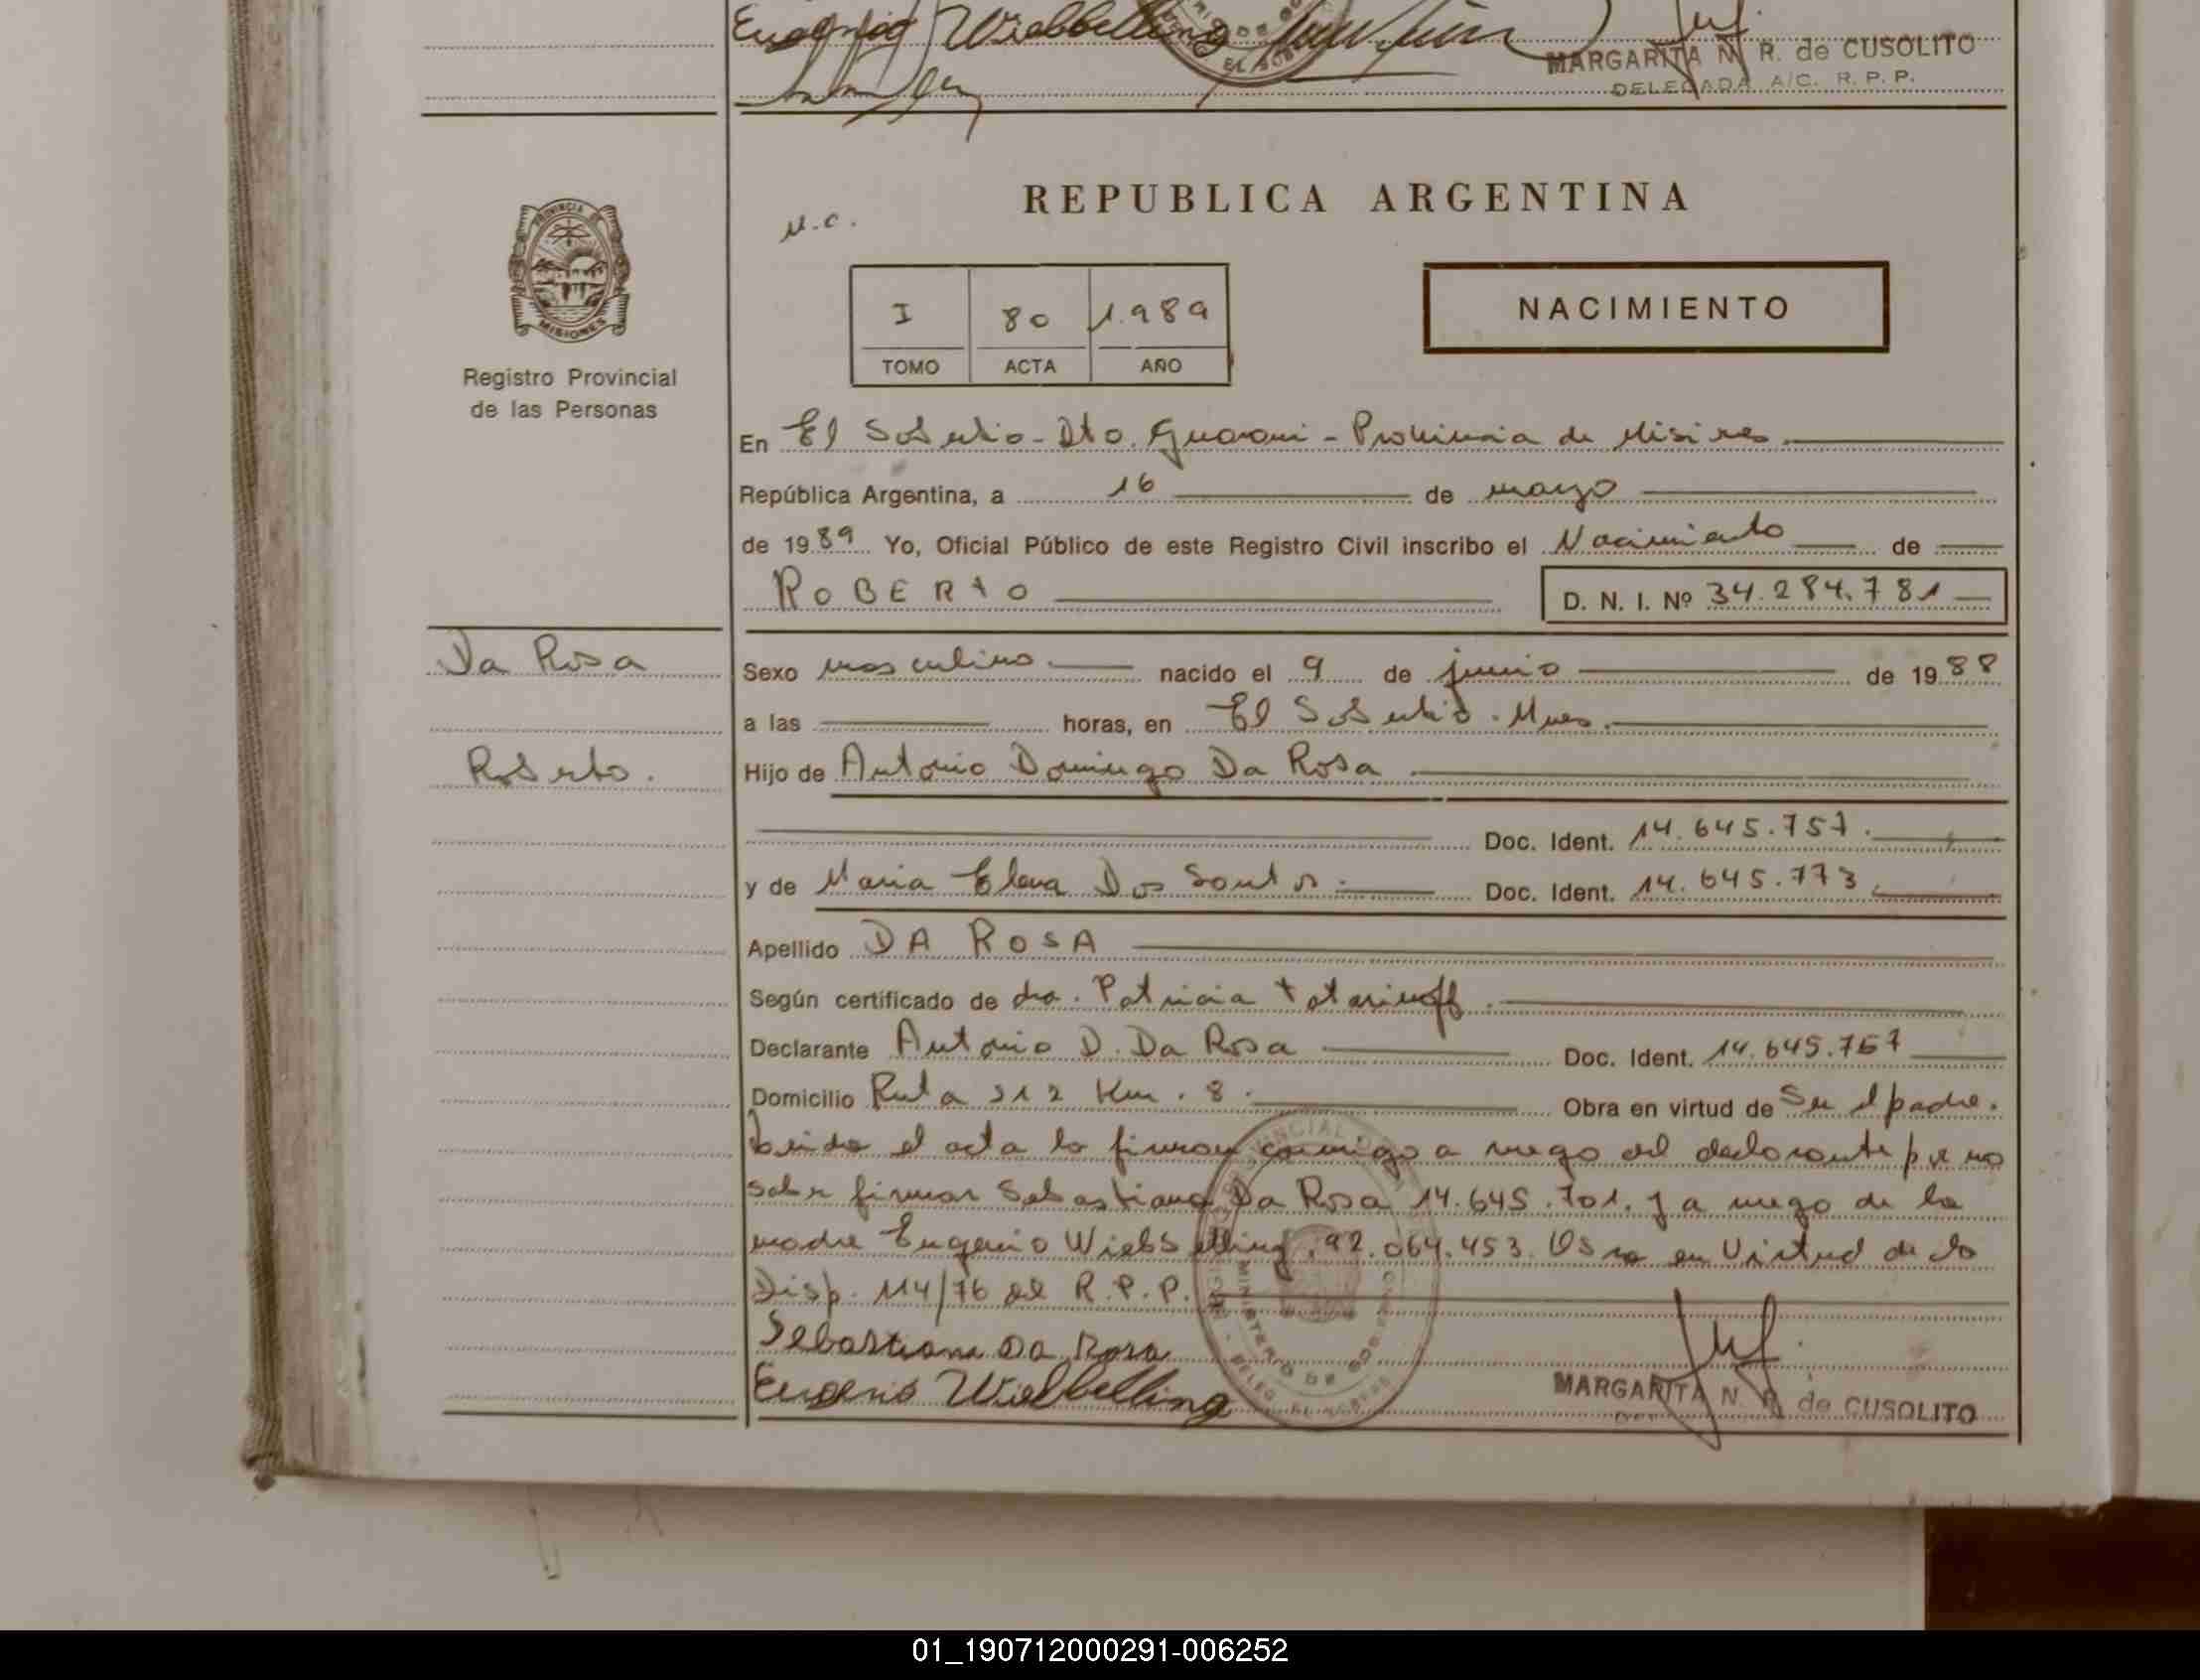 Eugenio Wiebbelling
MARGARITA N. R. de CUSOLITO
DELEGADA A/C. R. P. P.
PROVINCIA DE
MISIONES
Registro Provincial
de las Personas
REPUBLICA ARGENTINA
N.C.
I 80 1.989
TOMO ACTA AÑO
NACIMIENTO
En El Soberbio - Dto. Guarani - Provincia de Misiones
República Argentina, a 16 de marzo
de 1989 Yo, Oficial Público de este Registro Civil inscribo el Nacimiento de
ROBERTO D. N. I. Nº 34.284.781
Da Rosa
Roberto.
Sexo masculino. nacido el 9 de junio de 1988
a las horas, en El Soberbio. Mnes.
Hijo de Antonio Domingo Da Rosa
Doc. Ident. 14.645.757.
y de Maria Elena Dos Santos. Doc. Ident. 14.645.773.
Apellido DA ROSA
Según certificado de dra. Patricia Tatarinoff.
Declarante Antonio D. Da Rosa Doc. Ident. 14.645.757
Domicilio Ruta 212 Km. 8. Obra en virtud de Ser el padre.
Leida el acta la firman conmigo a ruego del declarante p q no
saber firmar Sebastiana Da Rosa 14.645.701. y a ruego de la
madre Eugenio Wiebbelling. 92.064.453. en Virtud de la
Disp. 114/76 del R.P.P.
Sebastiana Da Rosa
Eugenio Wiebbelling
MINISTERIO DE GOBIERNO
MARGARITA N. R. de CUSOLITO
01_190712000291-006252